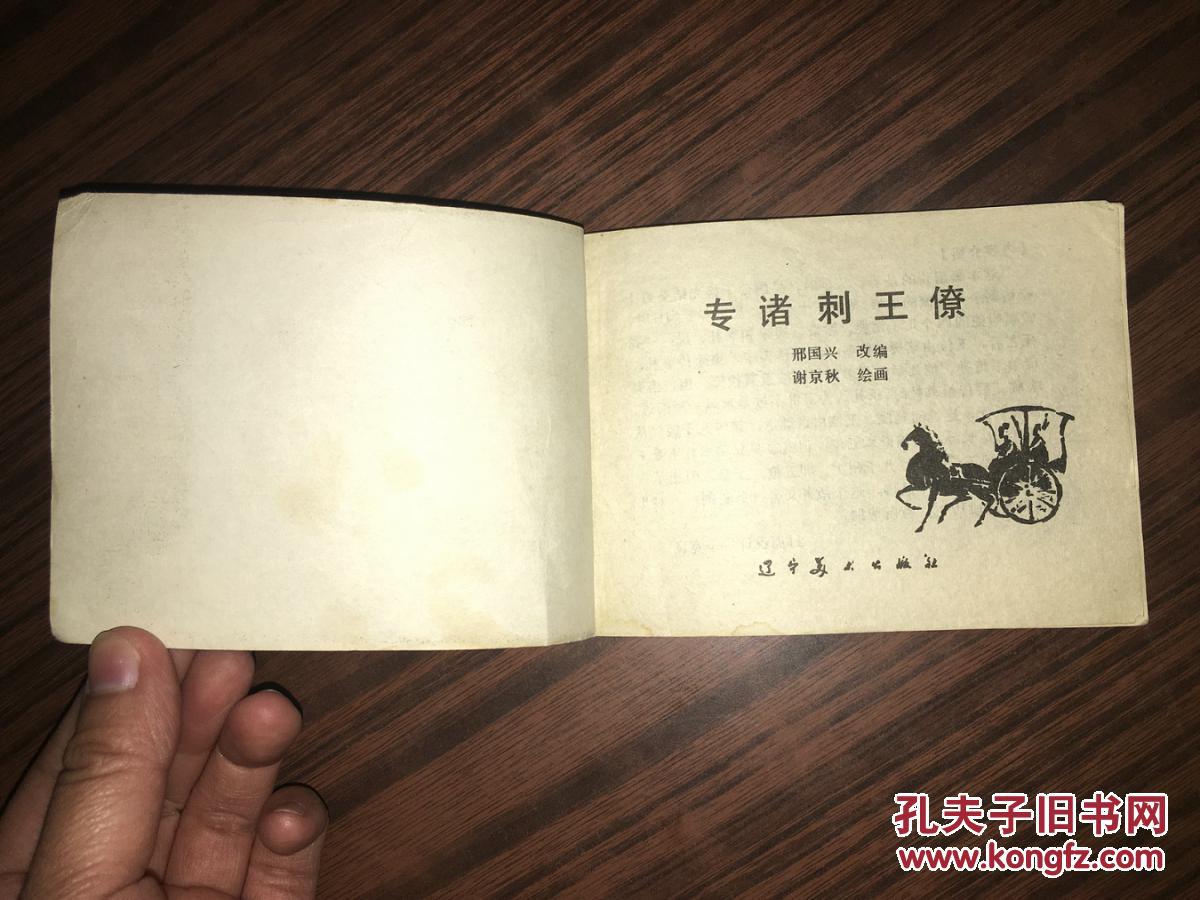 专诸刺王僚
邢国兴 改编
谢京秋 绘画
辽宁美术出版社
孔夫子旧书网
www.kongfz.com